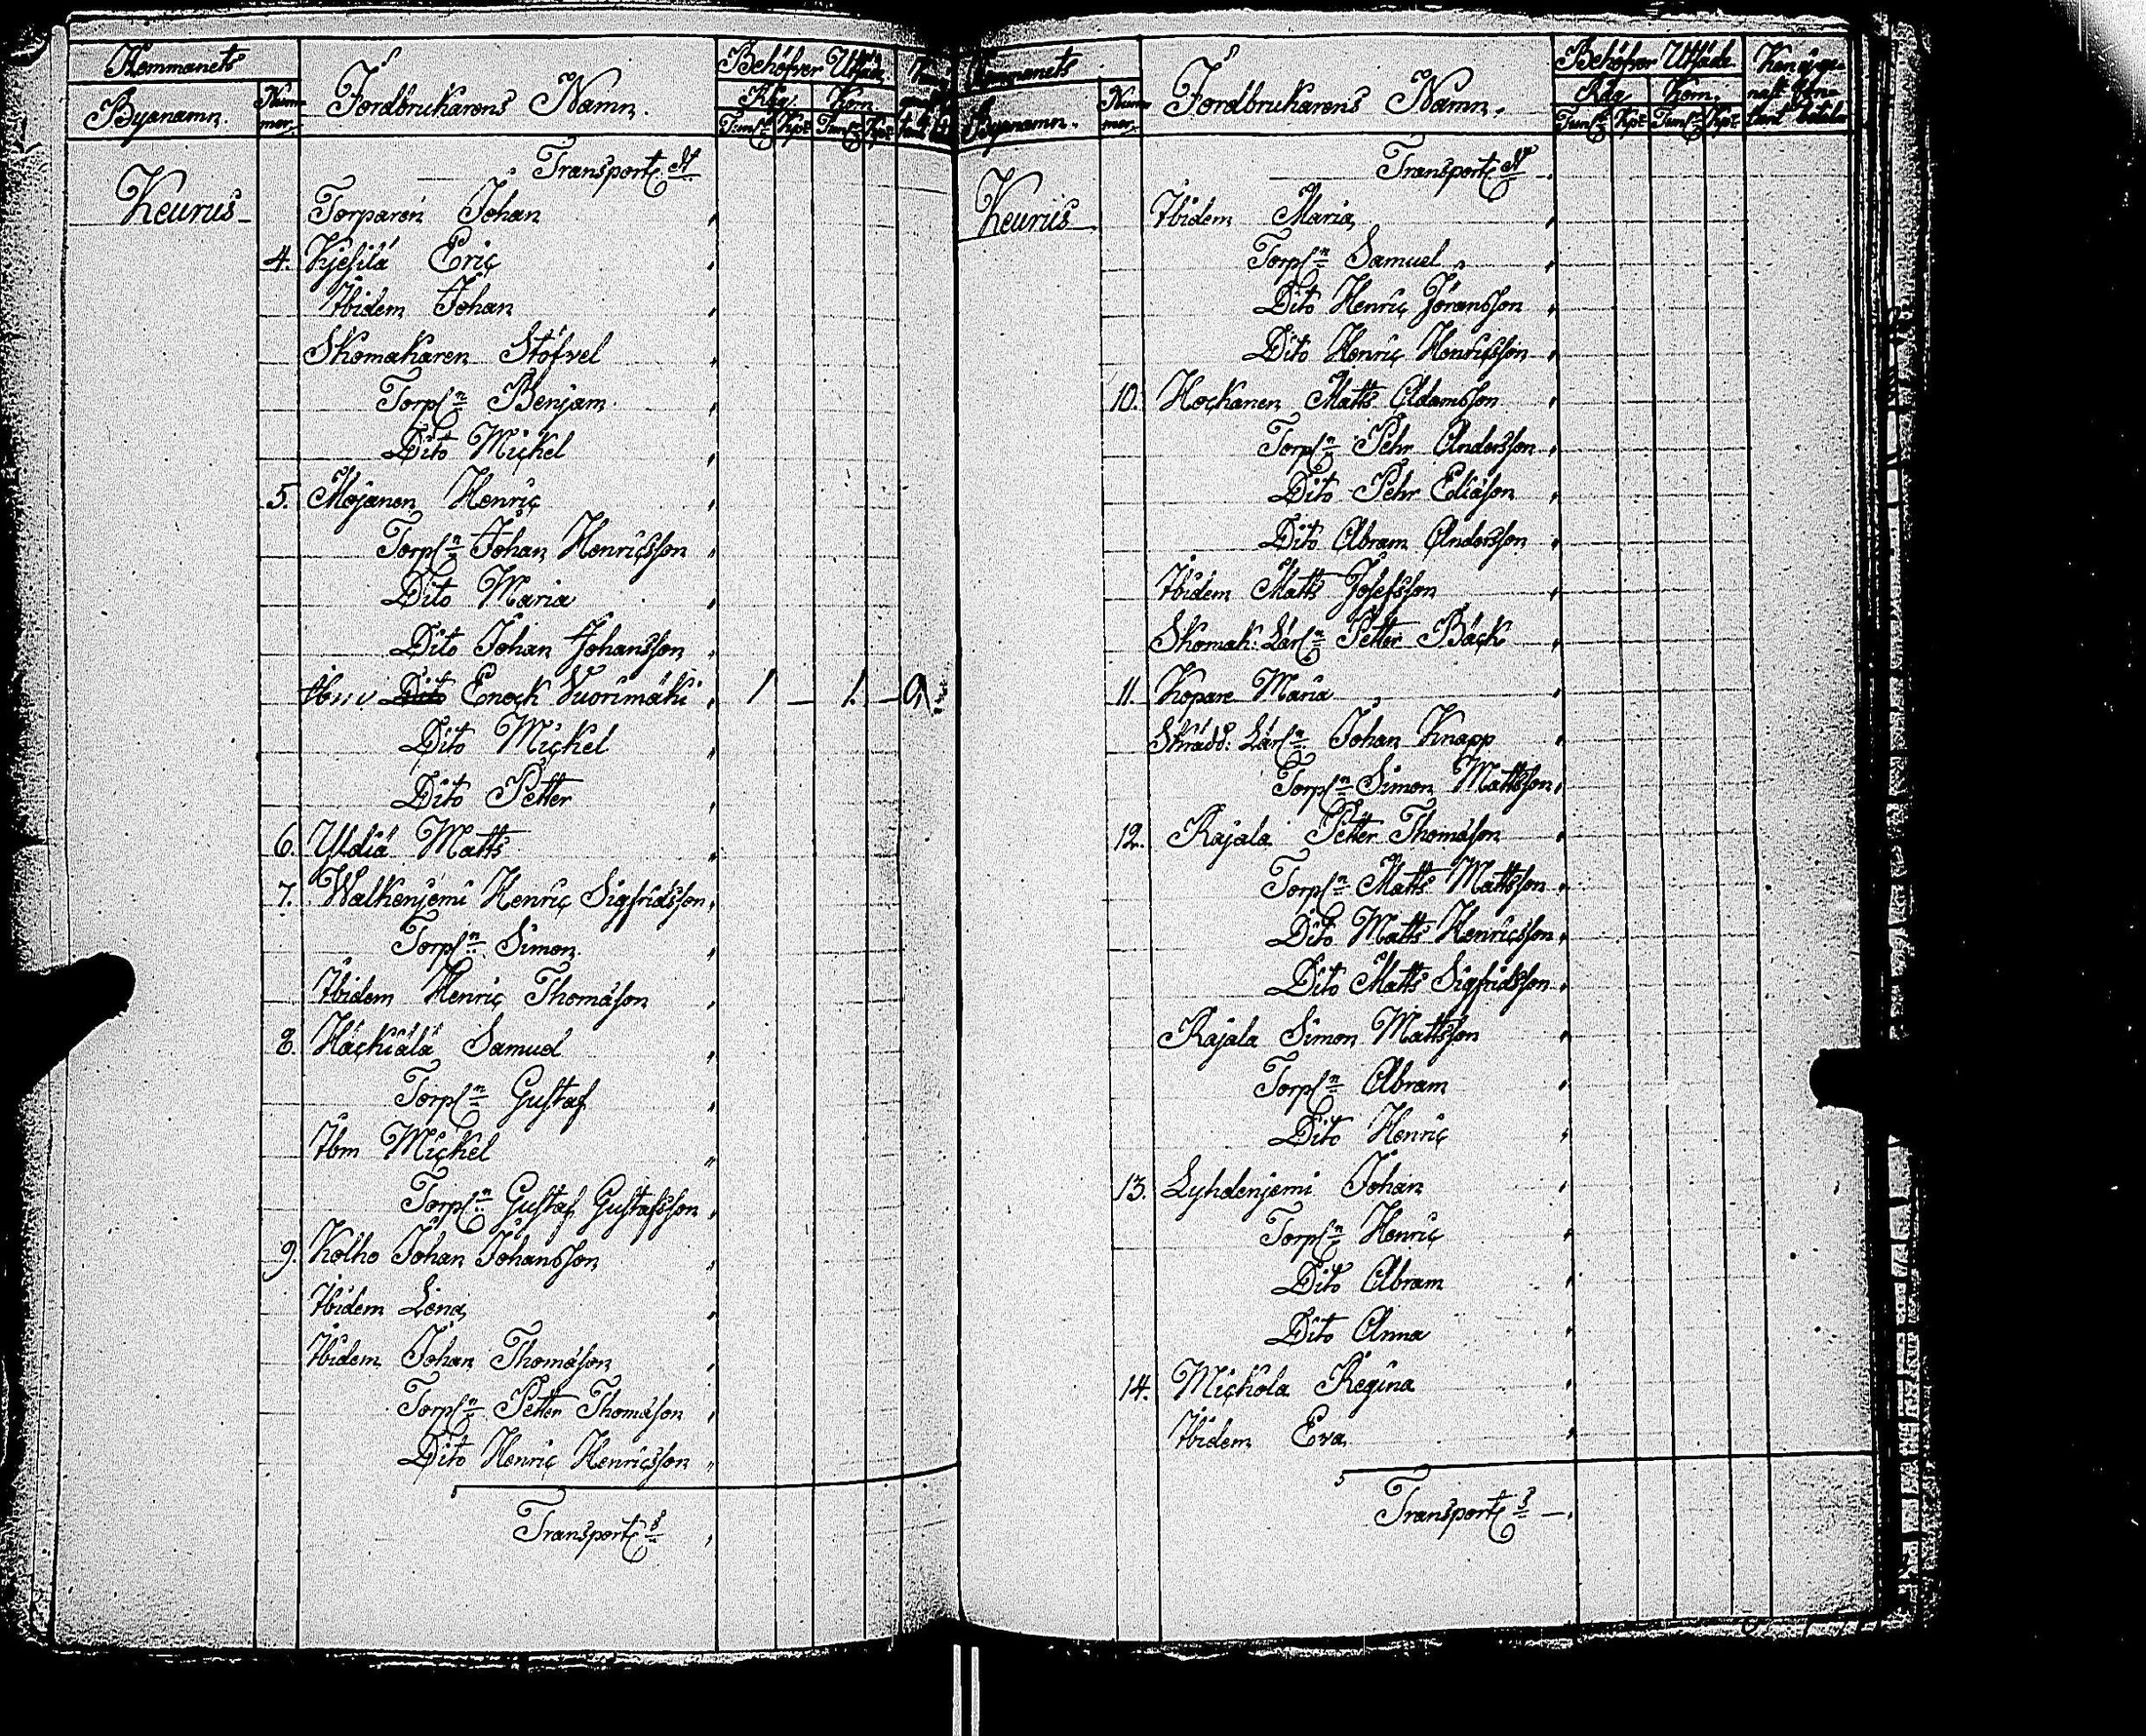 Hemmanets
Byanamn.
Num
mer.
Jordbrukarens Namn.
Behöfver Utsäde
Råg. Korn.
Tun: Kpr Tun: Kpr
Transport af
Keurus
Torparen Johan
4. Kjesilä Eric
Ibidem Johan
Skomakaren Stöfvel
Torpn Benjam.
Dito Mickel
5. Mojanen Henric
Torpn Johan Henricsson
Dito Maria
Dito Johan Johansson
Dito Enock Vuorimäki 1 — 1. —
Dito Mickel
Dito Petter
6. Yldiä Matts
7. Walkenjemi Henric Sigfridsson
Torpn Simon
Ibidem Henric Thomasson
8. Häckiälä Samuel
Torpn Gustaf
Ibm Mickel
Torpn Gustaf Gustafsson
9. Kolho Johan Johansson
Ibidem Lena
Ibidem Johan Thomasson
Torpn Petter Thomasson
Dito Henric Henricsson
Transport
Hemmanets
Byanamn.
Num
mer.
Jordbrukarens Namn.
Behöfver Utsäde
Råg. Korn.
Tun: Kpr Tun: Kpr
Kan ege-
Transport af
Keurus
Ibidem Maria
Torpn Samuel
Dito Henric Jöransson
Dito Henric Henricsson
10. Hockanen Matts Adamsson
Torpn Pehr Andersson
Dito Pehr Ediäson
Dito Abram Andersson
Ibidem Matts Josefsson
Skomak: Lärn Petter Bäck
11. Kopare Maria
Skrädd: Lärn Johan Knapp
Torpn Simon Mattsson
12. Rajala Petter Thomasson
Torpn Matts Mattsson
Dito Matts Henricsson
Dito Matts Sigfridsson
Rajala Simon Mattsson
Torpn Abram
Dito Henric
13. Lyhdenjemi Johan
Torpn Henric
Dito Abram
Dito Anna
14. Mickola Regina
Ibidem Eva
Transport